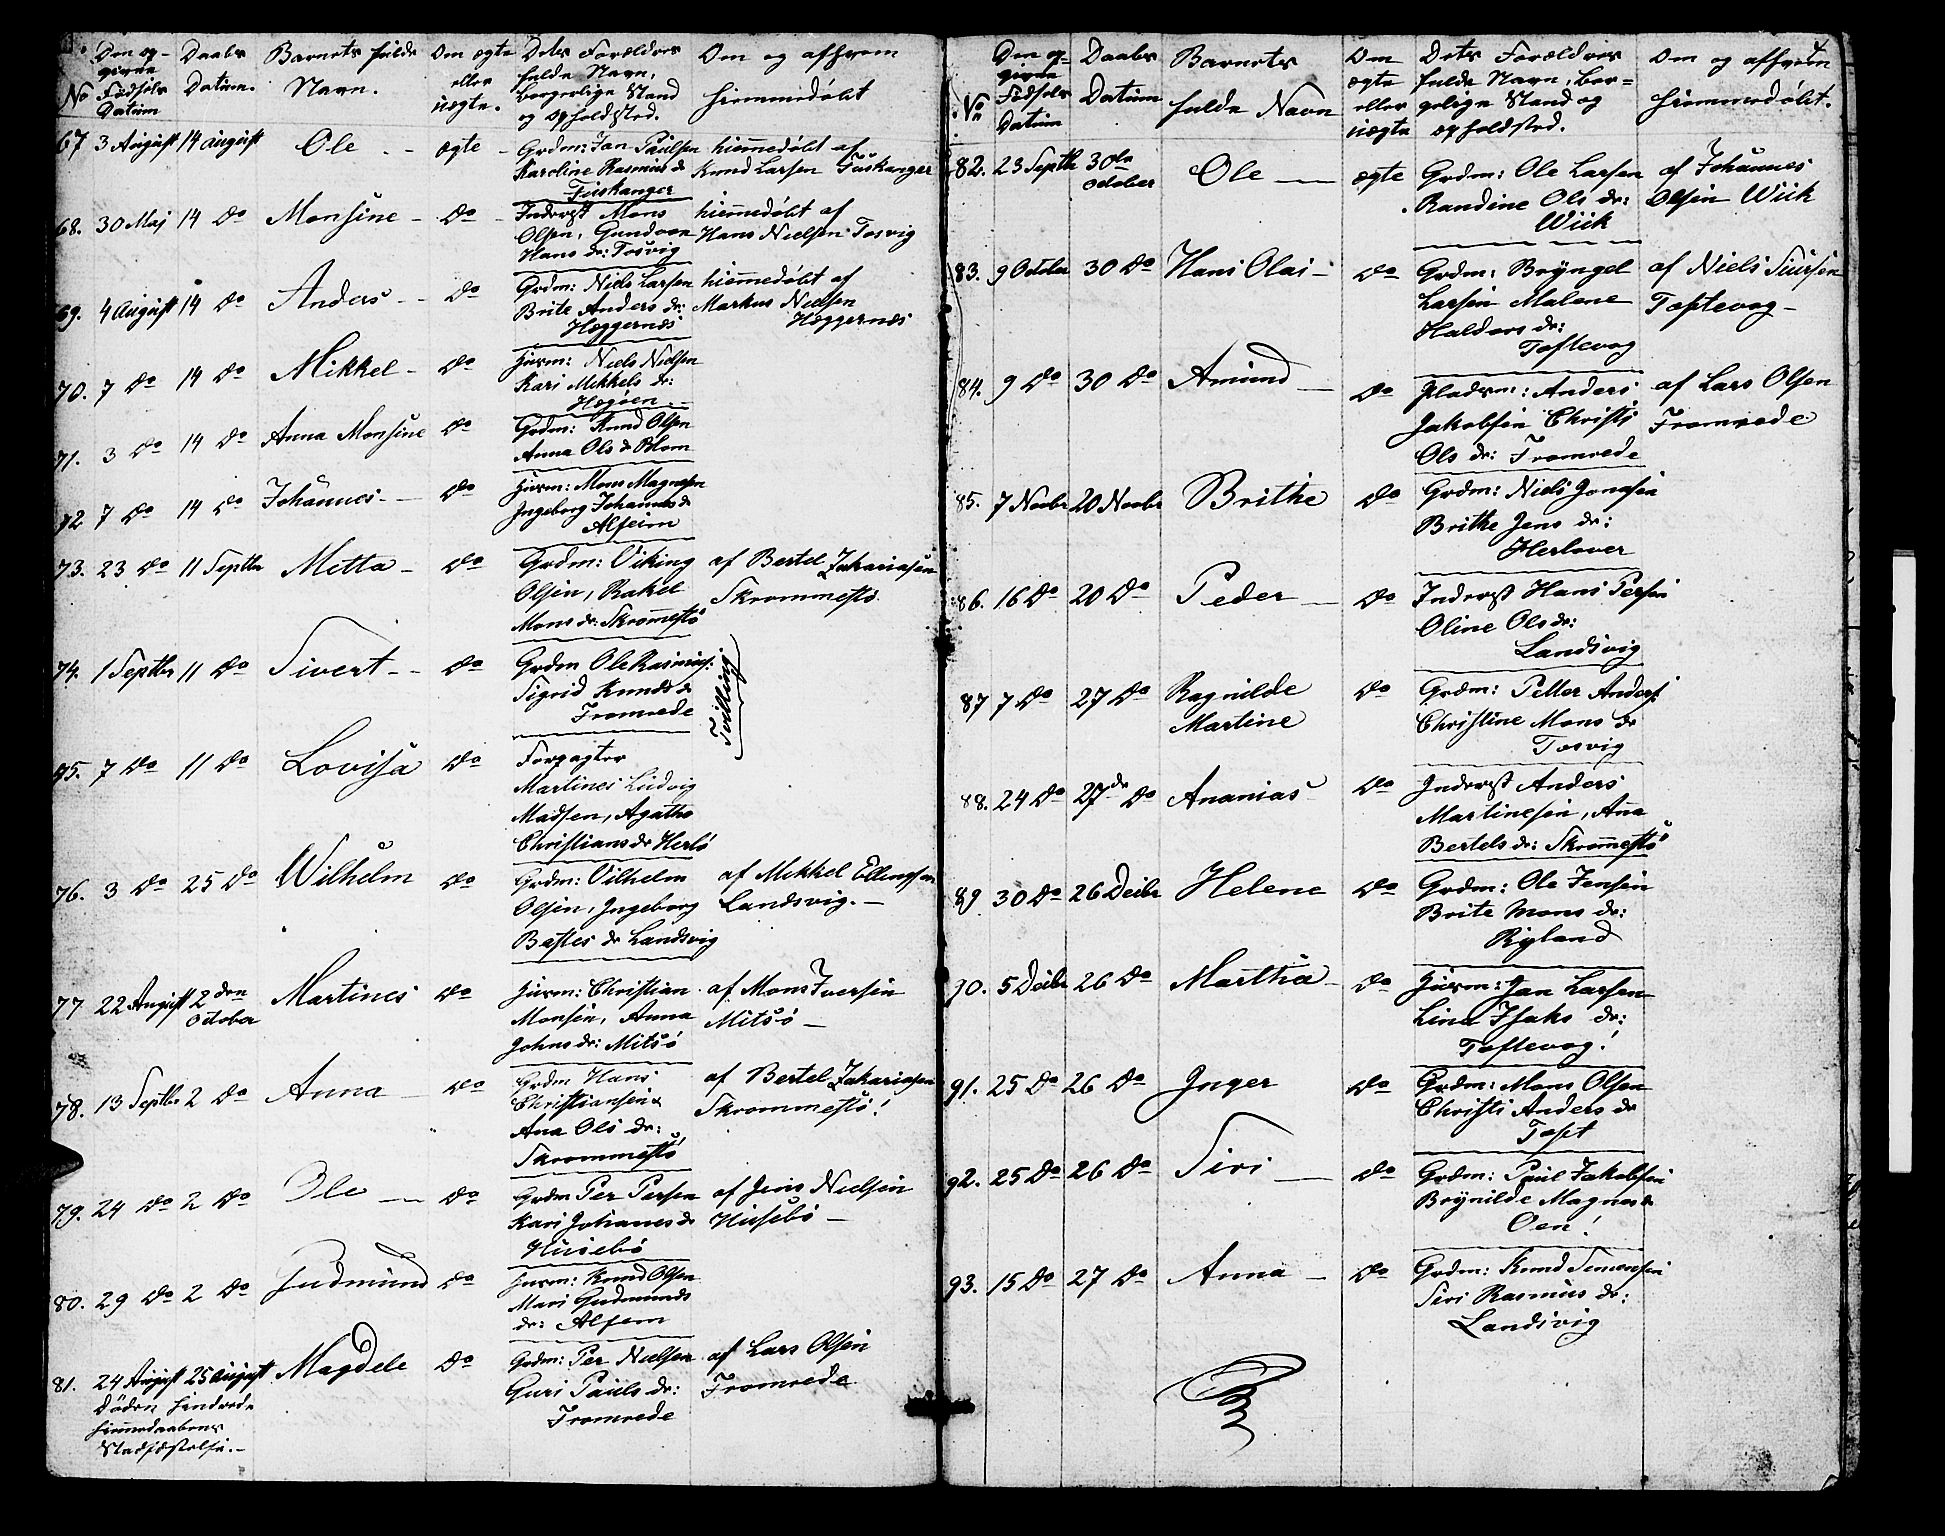 No Den op- Daabs Barnets fulde Om ægte Dets Forældres Om og af hvem
givne Datum. Navn. eller fulde Navn, hiemmedøbt
Fødsels uægte. borgerlige Stand
Datum og Opholdsted.
67 3 August 14 August Ole - ægte - Grdm: Jan Paulsen hiemedøbt af
Karoline Rasmus dr Knud Larsen Tuskanger
Tuskanger
68. 30 Maj 14 Do Monsine - Do - Inderst Mons hiemedøbt af
Olsen, Hans Nielsen Tosvig
Hans dr: Tosvig
69. 4 August 14 Do Anders - Do Grdm: Niels Larsen hiemedøbt af
Brite Anders dr: Markus Nielsen
Hæggernæs Hæggernæs
70. 7 Do 14 Do Mikkel - Do Huusm: Niels Nielsen
Kari Mikkels dr:
Hagøen
71. 3 Do 14 Do Anna Monsine Do Grdm: Knud Olsen
Anna Ols dr Blom
72 7 Do 14 Do Johannes - Do Huusm: Mons Magnesen
Ingeborg Johannes dr
Alfem
73. 23 Do 11 Septbr Metta - Do Grdm: Viking af Bertel Zakariasen
Olsen, Rakel Skrommestø
Mons dr: Skromestø
74. 1 Septbr 11 Do Sivert - Do Grdm Ole Rasmus:
Sigrid Knuds dr Tvilling
Fromrede
75. 7 Do 11 Do Lovisa Do Forpagter
Martines Ludvig
Madsen, Agathe
Christians dr Herlø
76. 3 Do 25 Do Wilhelm Do Grdm: Vilhelm af Mikkel Ellingsen
Olsen, Ingeborg Landsvig. -
Bastes dr Landsvig
77 22 August 2den October Martines Do Huusm: Christian af Mons Iversen
Monsen, Anna Mitsø -
Johns dr: Mitsø
78. 13 Septbr 2 Do Anna - Do Grdm Hans af Bertel Zakariasen
Christiansen Skrommestø!
Ana Ols dr:
Skrommestø
79. 24 Do 2 Do Ole - Do Grdm Per Persen af Jens Nielsen
Kari Johanes dr Husebø -
Husebø
80. 29 Do 2 Do Gudmund Do Huusm: Knud Olsen
Mari Gudmunds
dr: Alfem
81. 24 August 25 August Magdele Do Grdm: Per Nielsen af Lars Olsen
Døden hindrede Guri Pauls dr: Fromrede
hiemedaabens Fromrede
Stadfæstelse. -
No Den op- Daabs Barnets Om Dets Forældres Om og af hvem
givne Datum fulde Navn ægte fulde Navn, bor- hiemmedøbt.
Fødsels eller gelige Stand og
Datum uægte opholdsted.
82. 23 Septbr 30de October Ole - ægte Grdm: Ole Larsen af Johannes
Randine Ols dr: Olsen Wiik
Wiik
83. 9 October 30 Do Hans Olai - Do Grdm: Bryngel af Niels
Larsen Malene Toftevog -
Haldors dr:
Toftevog
84. 9 Do 30 Do Amund - Do Pladsm: Anders af Lars Olsen
Jakobsen Christi Fromrede
Ols dr: Fromrede
85. 7 Novbr 20 Novbr Brithe Do Grdm: Niels Jonasen
Brithe Jens dr:
Herlover
86. 16 Do 20 Do Peder - Do Inderst Hans Persen
Oline Ols dr:
Landsvig
87 7 Do 27 Do Ragnilde Do Grdm: Petter Anders:
Martine Christine Mons dr
Tosvig
88. 24 Do 27de Do Ananias Do Inderst Anders
Martinesen, Ana
Bertels dr: Skromestø
89 30 Do 26 Decbr Helene Do Grdm: Ole Jensen
Brite Mons dr:
Ryland
90. 5 Decbr 26 Do Martha - Do Huusm: Jan Larsen
Lina Isaks dr:
Toftevog!
91. 25 Do 26 Do Inger Do Grdm: Mons Olsen
Christi Anders dr
Toft
92. 25 Do 26 Do Siri - Do Grdm: Paul Jakobsen
Brynilde Magnes dr
Oen!
93. 15 Do 27 Do Anna - Do Grdm: Knud Simensen
Siri Rasmus dr:
Landsvig